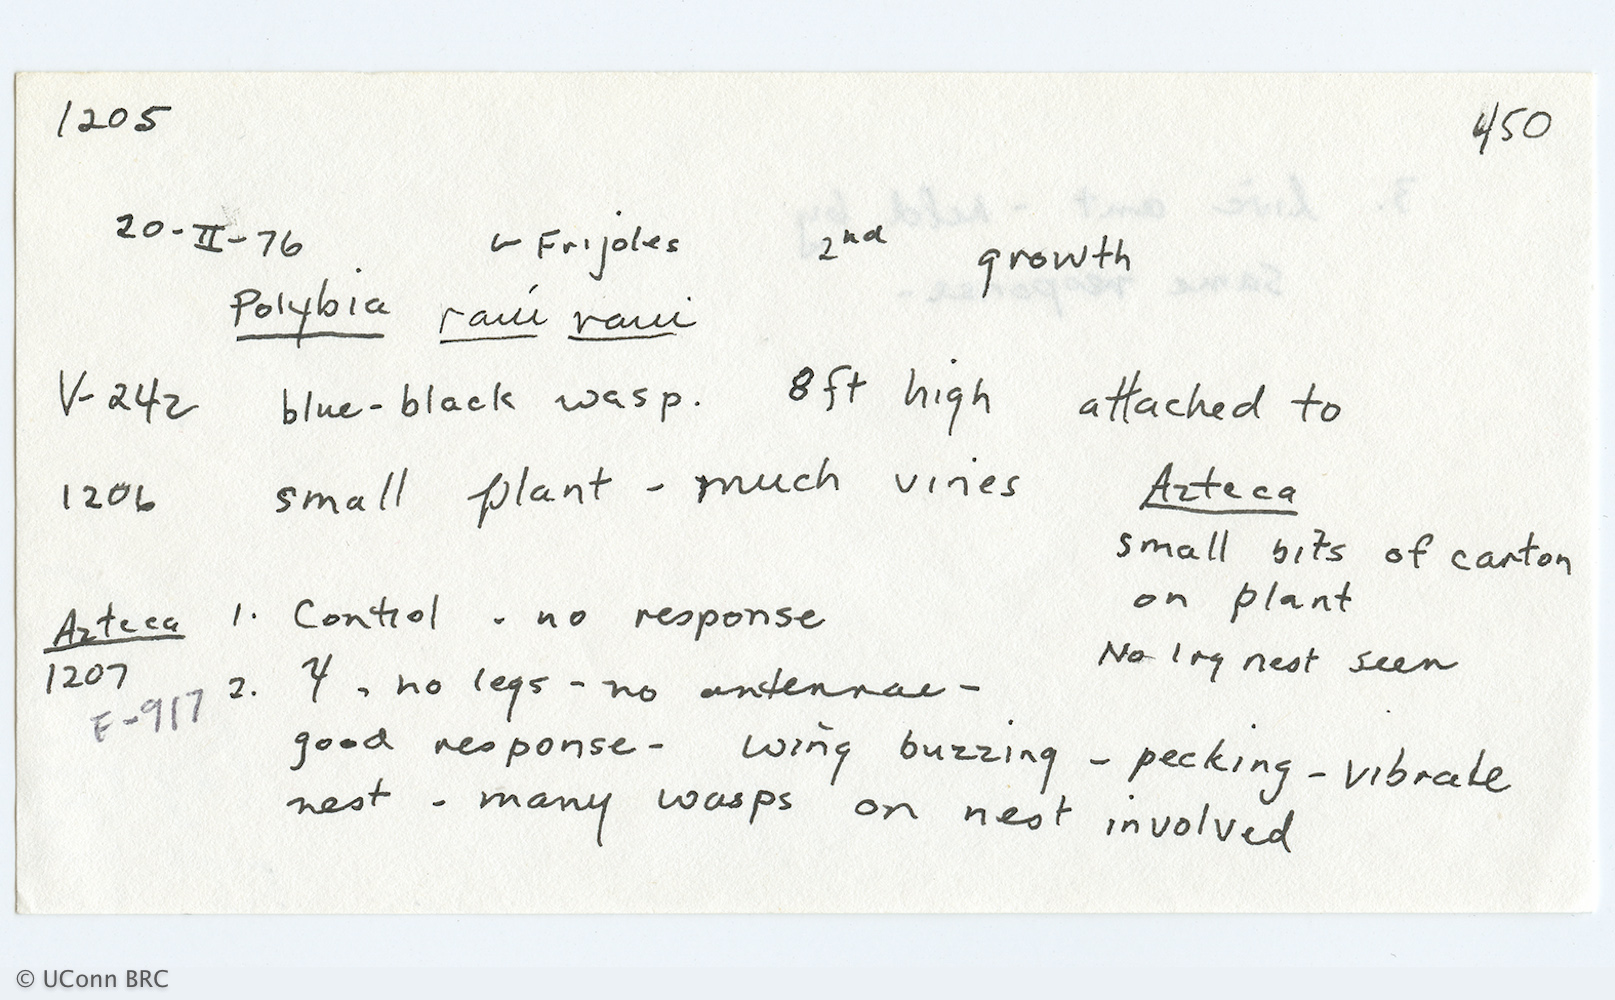 1205 450
20-II-76 Frijoles 2nd growth
Polybia raui raui
V-242 blue-black wasp. 8ft high attached to
1206 small plant - much vines Azteca
small bits of carton
on plant
No lrg nest seen
Azteca 1. Control - no response
1207 2. - no legs - no antennae -
E-917
good response - wing buzzing - pecking - vibrate
nest - many wasps on nest involved
3. live ant - held by
same response -
© UConn BRC